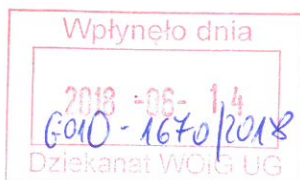 Wpłynęło dnia
2018 -06- 14
GO10 - 1670/2018
Dziekanat WOiG UG